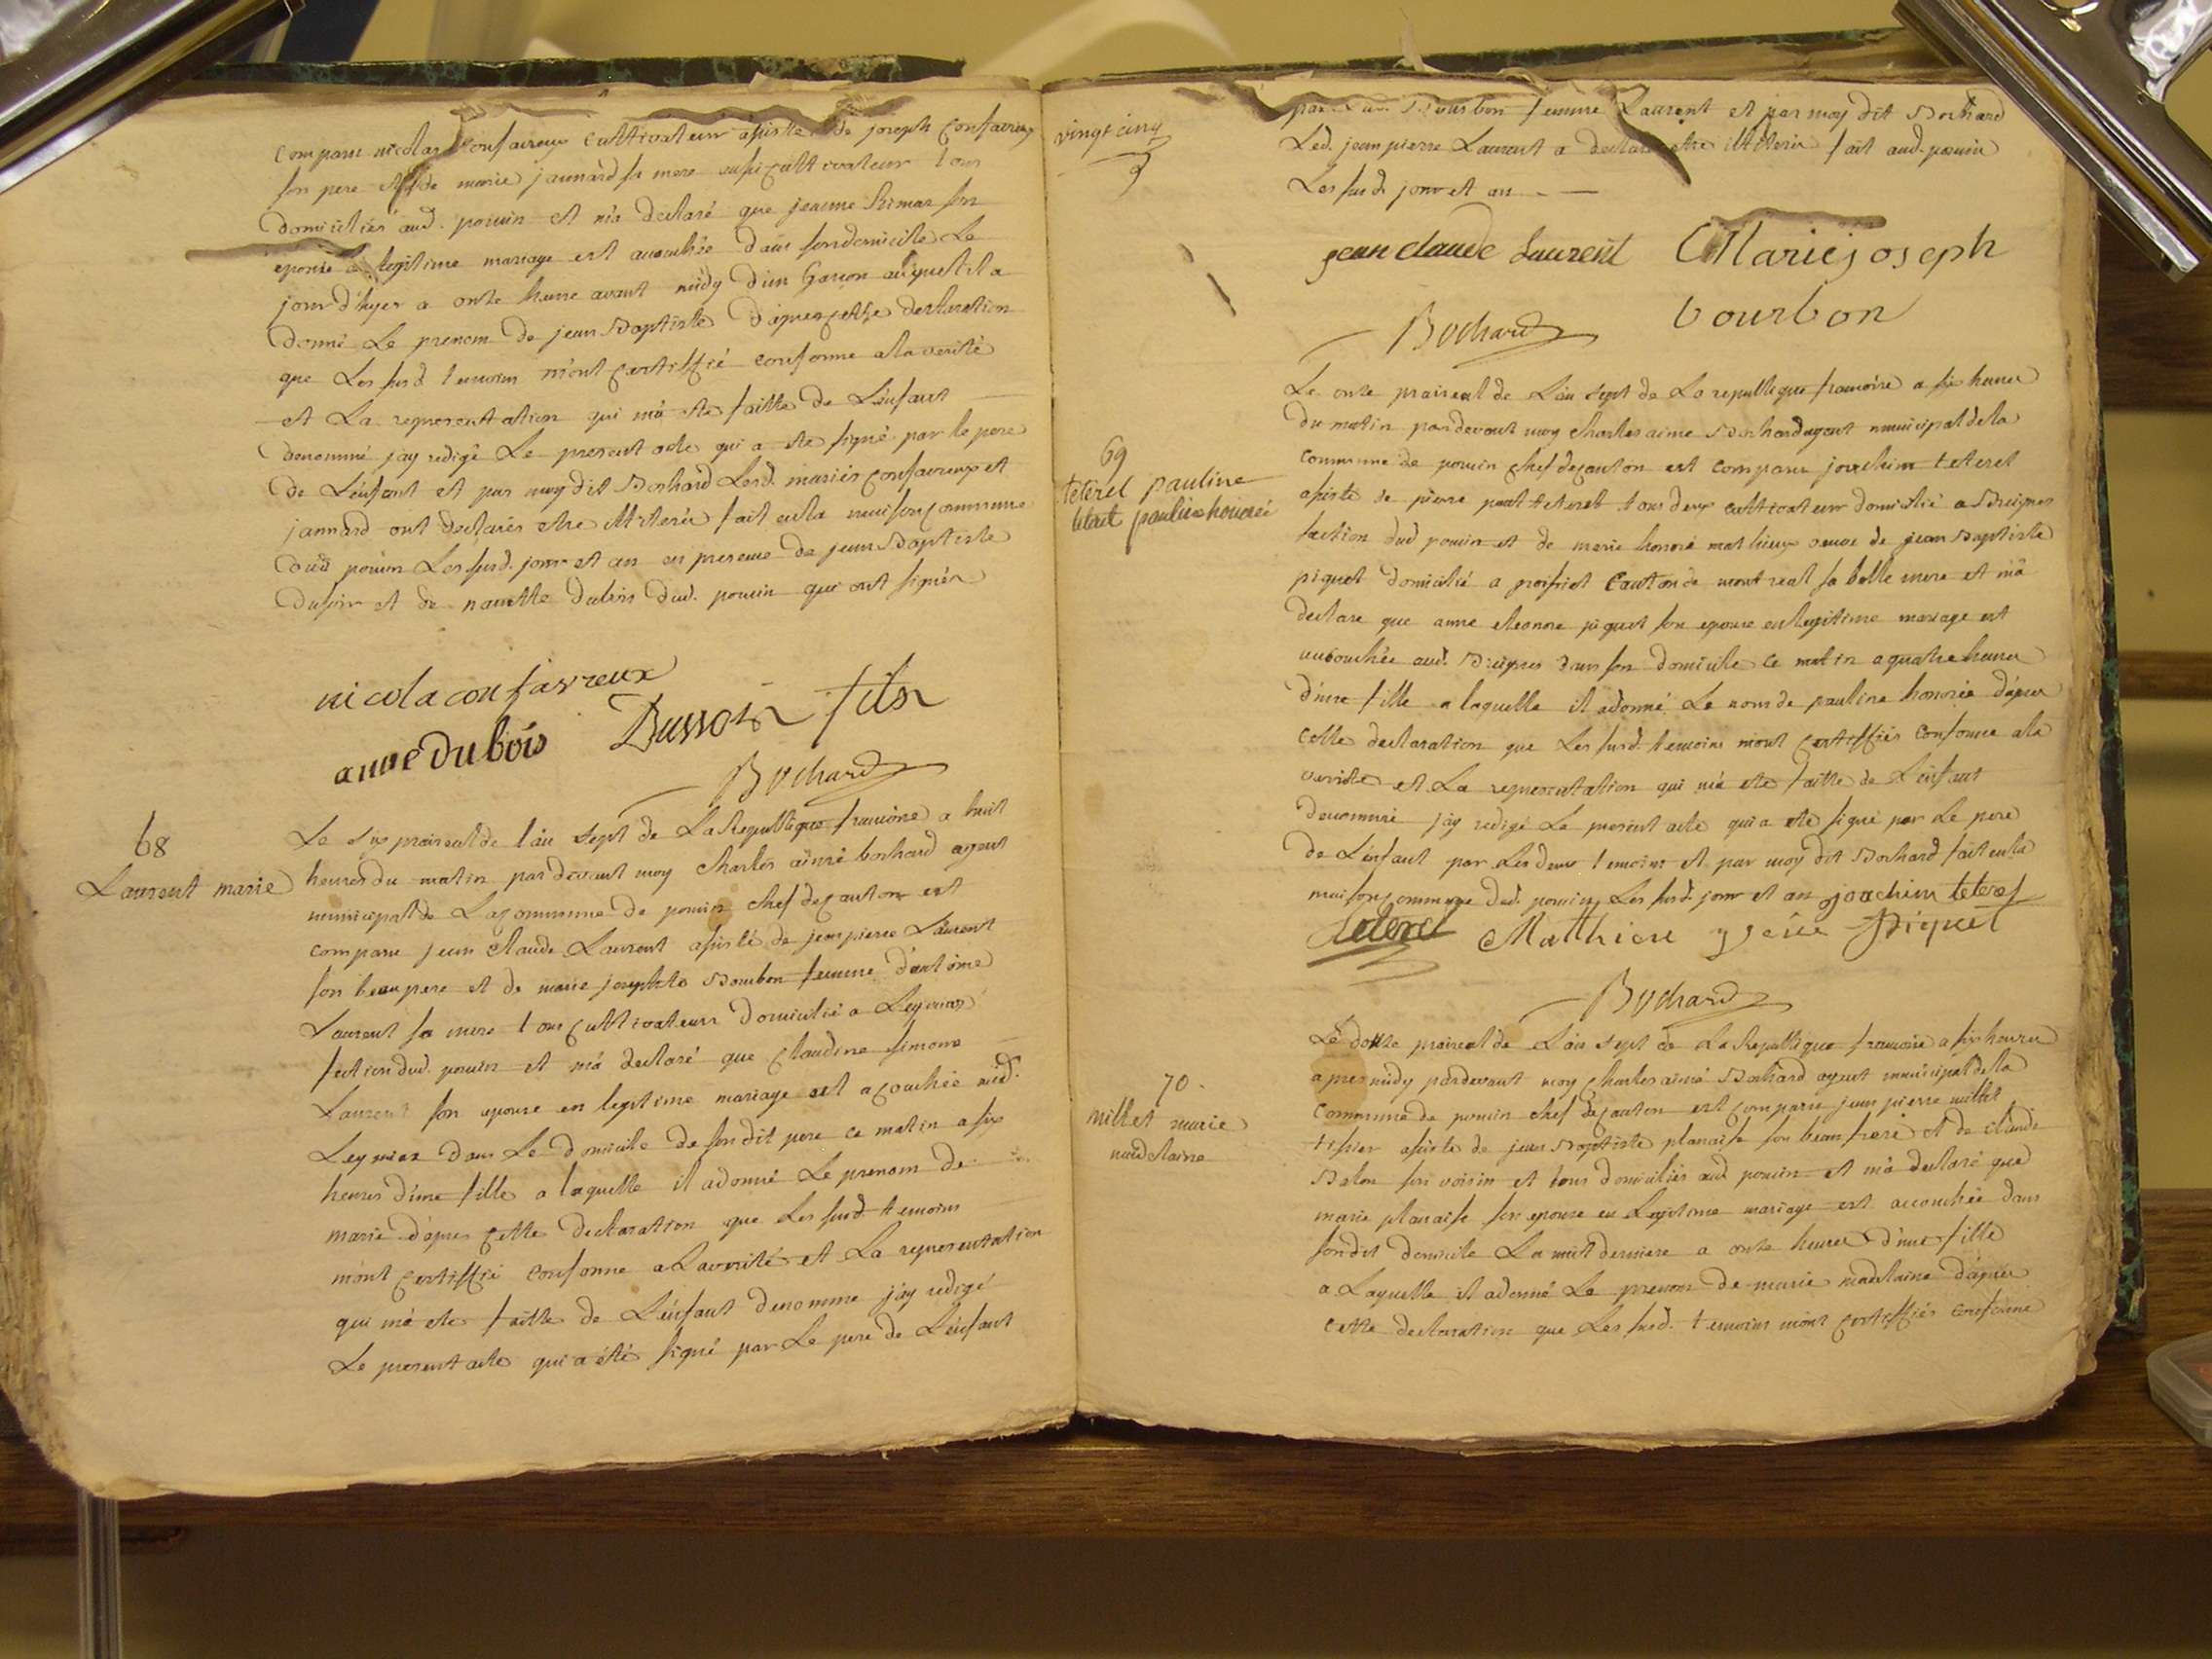 comparu nicolas confavreux cultivateur assisté de joseph confavreux
son pere et de marie jannard sa mere aussi cultivateur tous
domiciliés aud. pouin et m'a declaré que jeanne son
epouse legitime mariage est accouchée dans son domicile Le
jour d'hyer a onze heure avant midy d'un Garcon auquel il a
donné Le prenom de jean Baptiste d'apres cette declaration
que Les susd. temoins m'ont certiffié conforme a la verité
et La representation qui m'a ete faitte de L'enfant
denommé j'ay redigé Le present acte qui a ete signé par le pere
de L'enfant et par moy dit Bochard Lesd. mariés confavreux et
jannard ont declarés etre illiterés fait en la maison commune
dud pouin Les susd. jour et an en presence de jean Baptiste
et de nanette dubois dud. pouin qui ont signés
nicola confavreux
anne Du bois fils
Bochard
68
Laurent marie
Le six praireal de l'an sept de La Republique francoise a huit
heures du matin par devant moy Charles aimé bochard agent
municipal de La commune de pouin chef de canton est
comparu jean Claude Laurent assisté de jean pierre Laurent
son beau pere et de marie josephte Bourbon femme d'antoine
Laurent sa mere tous cultivateurs domicilié a
section dud. pouin et m'a declaré que Claudine simone
Laurent son epouse en legitime mariage est acouchée aud.
dans Le domicile de son dit pere ce matin a six
heures d'une fille a laquelle il a donné Le prenom de
marie d'apres cette declaration que Les susd. temoins
m'ont certiffié conforme a La verité et La representation
qui m'a ete faitte de L'enfant denommé j'ay redigé
Le present acte qui a été signé par Le pere de L'enfant
vingt cinq
par Bourbon femme Laurent et par moy dit Bochard
Led. jean pierre Laurent a declaré etre illiteré fait aud. pouin
Les susd. jour et an
jean claude Laurent Marie joseph
bourbon
Bochard
69
teteret pauline
honoré
Le onze praireal de L'an sept de La republique francoise a six heures
du matin pardevant moy Charles aimé Bochard agent municipal de la
commune de pouin chef de canton est comparu joachim teteret
assisté de pierre teteret tous deux cultivateur domicilié a
section dud pouin et de marie honoré mathieux veuve de jean Baptiste
piquet domicilié a canton de mont real sa belle mere et m'a
declaré que anne eleonore piquet son epouse en legitime mariage est
accouchée aud. dans son domicile ce matin a quatre heures
d'une fille a laquelle il a donné Le nom de pauline honorée d'apres
cette declaration que Les susd. temoins m'ont certiffiés conforme a la
verité et La representation qui m'a ete faitte de L'enfant
denommé j'ay redigé Le present acte qui a ete signé par Le pere
de L'enfant par Les deux temoins et par moy dit Bochard fait en la
maison commune dud. pouin Les susd. jour et an joachim teteret
teteret Mathieu piquet
Bochard
70
millet marie
madelaine
Le douze praireal de L'an sept de La Republique francoise a six heures
apres midy pardevant moy Charles aimé Bochard agent municipal de la
commune de pouin chef de canton est comparu jean pierre millet
tissier assisté de jean Baptiste son beau frere et de claude
son voisin et tous domiciliés aud pouin et m'a declaré que
marie son epouse en Legitime mariage est accouchée dans
son dit domicile La nuit derniere a onze heures d'une fille
a Laquelle il a donné Le prenom de marie madelaine d'apres
cette declaration que Les susd. temoins m'ont certiffiés conforme